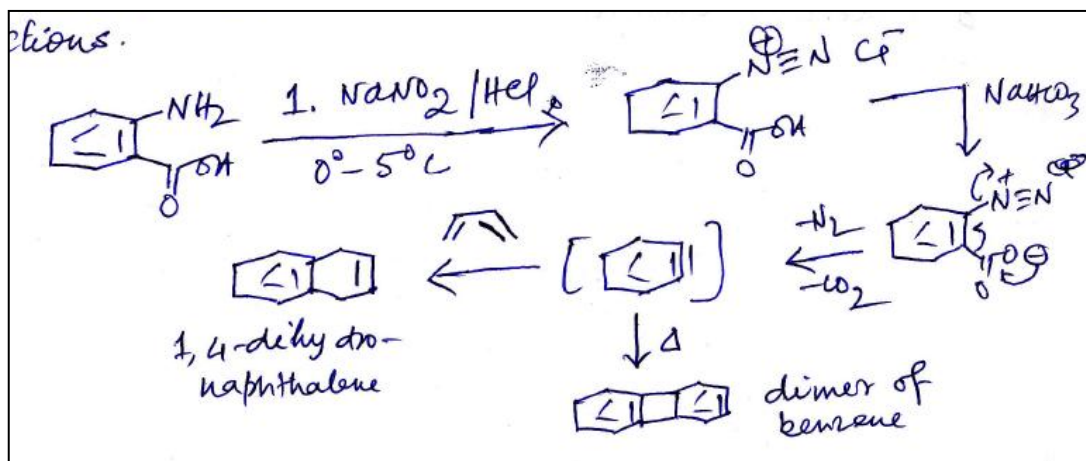 ctions.
NH₂
OH
O
1. NaNO₂ /HCl
0°-5°C
⊕
N≡N Cl⁻
OH
O
NaHCO₃
+
N≡N
O⊖
O
-N₂
-CO₂
[ ]
1,4-dihydro-
naphthalene
Δ
dimer of
benzene